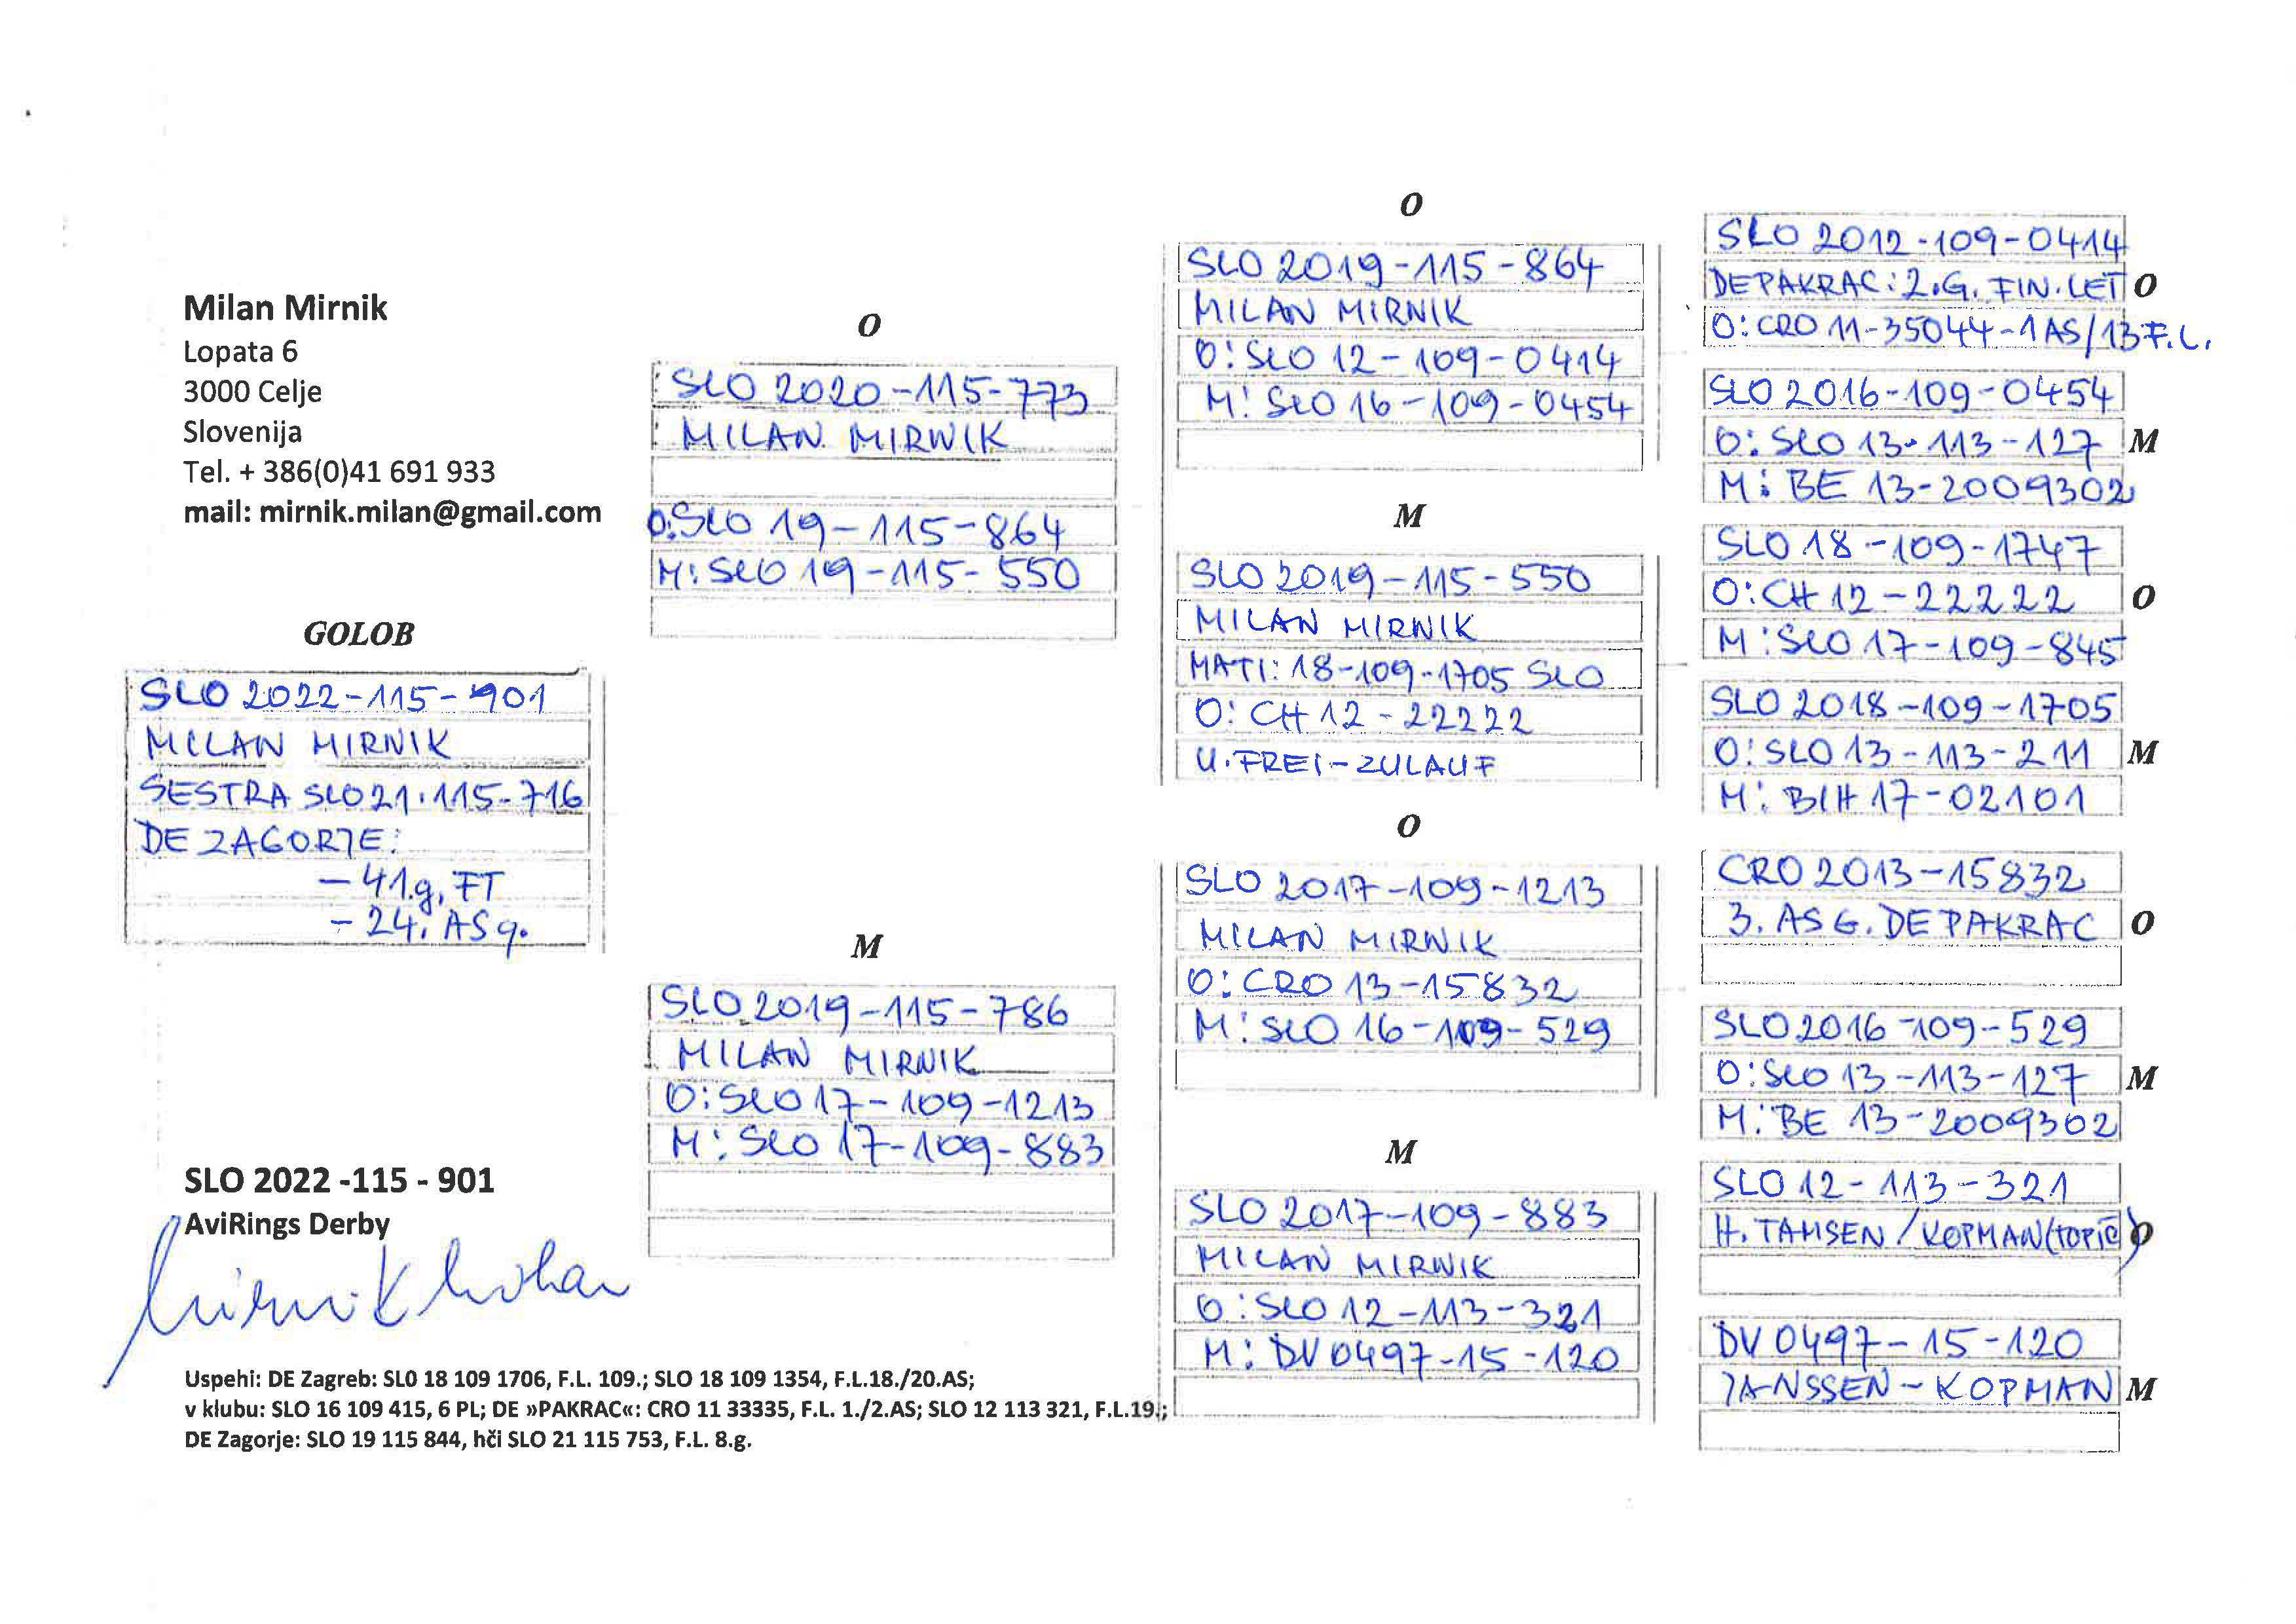 Milan Mirnik
Lopata 6
3000 Celje
Slovenija
Tel. + 386(0)41 691 933
mail: mirnik.milan@gmail.com
GOLOB
SLO 2022-115-901
MILAN MIRNIK
SESTRA SLO 21.115-716
DE ZAGORJE:
- 41.g, FT
- 24. AS g.
SLO 2022 -115 - 901
AviRings Derby
O
SLO 2020-115-773
MILAN MIRNIK
O: SLO 19-115-864
M: SLO 19-115-550
M
SLO 2019-115-786
MILAN MIRNIK
O: SLO 17-109-1213
M: SLO 17-109-883
O
SLO 2019-115-864
MILAN MIRNIK
O: SLO 12-109-0414
M: SLO 16-109-0454
M
SLO 2019-115-550
MILAN MIRNIK
MATI: 18-109-1705 SLO
O: CH 12-22222
U. FREI-ZULAUF
O
SLO 2017-109-1213
MILAN MIRNIK
O: CRO 13-15832
M: SLO 16-109-529
M
SLO 2017-109-883
MILAN MIRNIK
O: SLO 12-113-321
M: DV 0497-15-120
SLO 2012-109-0414
DE PAKRAC: 2.G. FIN. LET O
O: CRO 11-35044-1AS/13 F.L.
SLO 2016-109-0454
O: SLO 13-113-127 M
M: BE 13-2009302
SLO 18-109-1747
O: CH 12-22222 O
M: SLO 17-109-845
SLO 2018-109-1705
O: SLO 13-113-211 M
M: BIH 17-02101
CRO 2013-15832
3. AS G. DE PAKRAC O
SLO 2016-109-529
O: SLO 13-113-127 M
M: BE 13-2009302
SLO 12-113-321
H. TAMSEN / KOPMAN (TOPIČ) O
DV 0497-15-120
JANSSEN-KOPMAN M
Uspehi: DE Zagreb: SLO 18 109 1706, F.L. 109.; SLO 18 109 1354, F.L.18./20.AS;
v klubu: SLO 16 109 415, 6 PL; DE »PAKRAC«: CRO 11 33335, F.L. 1./2.AS; SLO 12 113 321, F.L.19.;
DE Zagorje: SLO 19 115 844, hči SLO 21 115 753, F.L. 8.g.